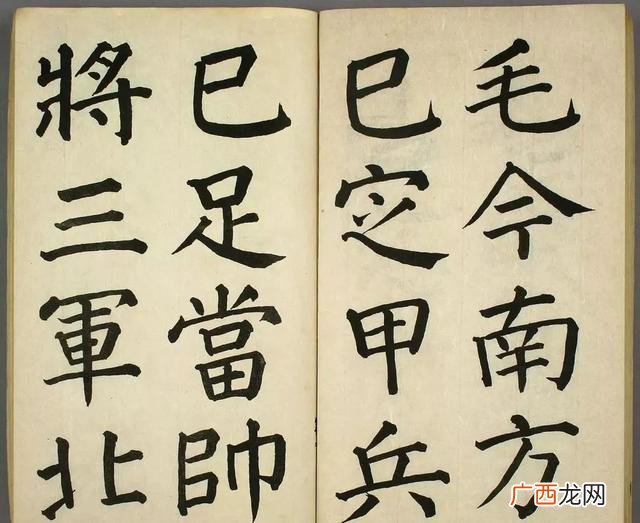 毛今南方
已定甲兵
已足當帥
將三軍北
广西龙网